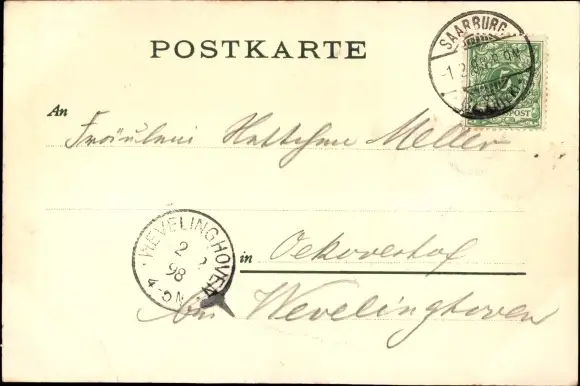 POSTKARTE
SAARBURG
-1.2.98.
An Fräulein Kettchen Meller
WEVELINGHOVEN
2 2
98
4-5N
in Oekoverhof
bei Wevelinghoven